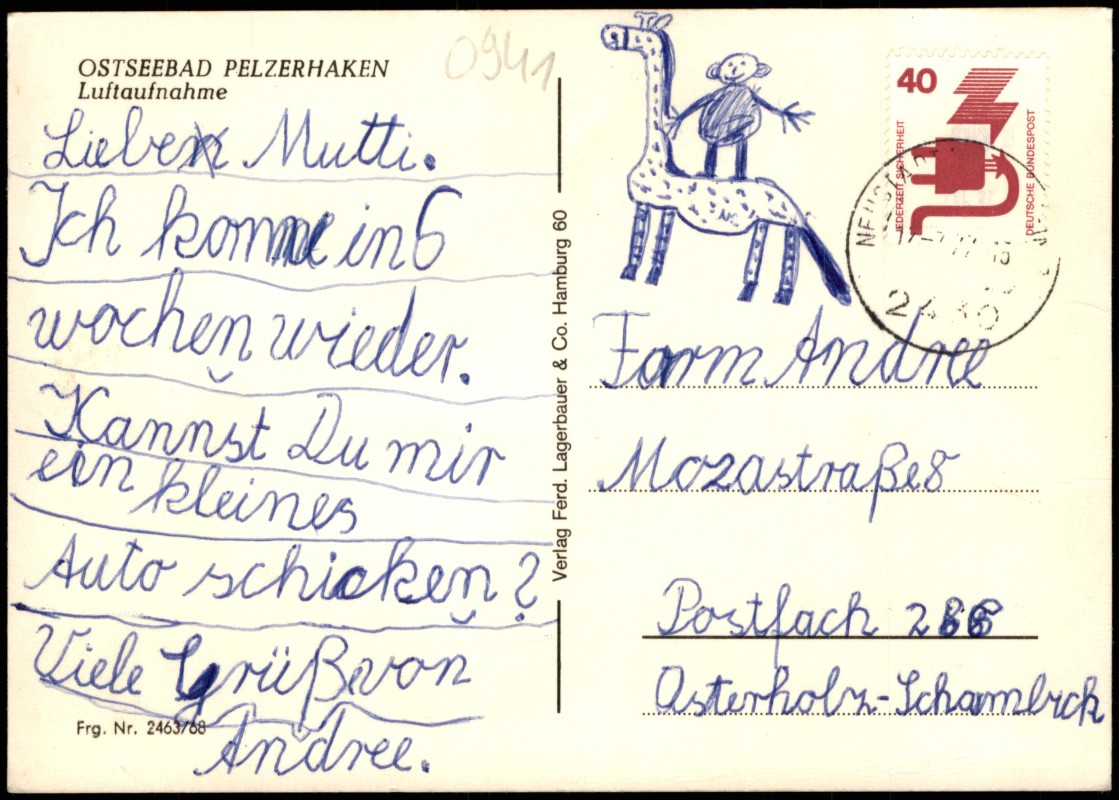 OSTSEEBAD PELZERHAKEN
Luftaufnahme
0941
Lieber Mutti.
Ich komme in 6
wochen wieder.
Kannst Du mir
ein kleines
Auto schicken?
Viele grüße von
Andree.
Frg. Nr. 2463/68
Verlag Ferd. Lagerbauer & Co. Hamburg 60
40
JEDERZEIT SICHERHEIT
DEUTSCHE BUNDESPOST
2430
Farm Andree
Mozastraße 8
Postfach 266
Osterholz-Schambrck